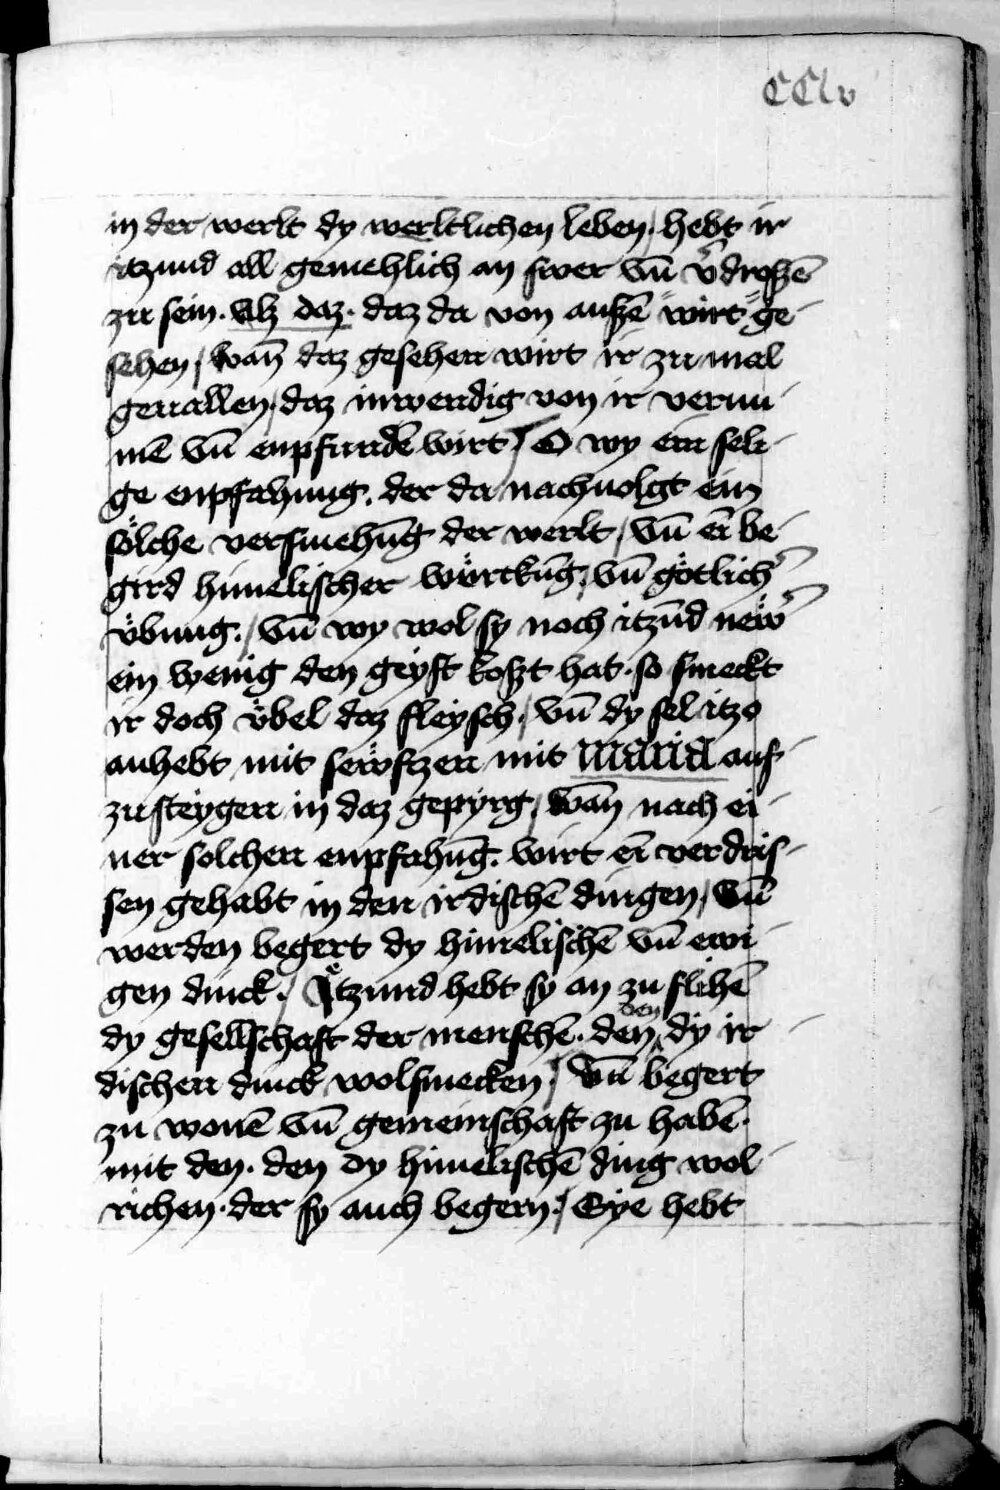 CClv
in der werlt dy werltlichen leben / hebt ir
itzund all gemehlich an swer vn̄ v̄droßē
zu sein. Alz daz. daz da von außē wirt ge-
sehen / wan̄ daz gesehen wirt ir zu mal
geuallen / daz inwendig von ir vernu-
mē vn̄ enpfundē wirt / O wy ein seli-
ge enpfahung. der da nachuolgt ein
sölche versmehūg der werlt / vn̄ eī be-
gird himelischer würckūg / vn̄ götlich̄
vͤbung. / vn̄ wy wol sy noch itzūd new̄
ein wenig den geyst koszt hat. so smeckt
ir doch vͤbel daz fleysch / vn̄ dy sel itzo
anhebt mit sewfczen mit maria auf-
zusteygen in daz gepyrg / wan̄ nach ei-
ner solchen enpfahūg. wirt eī verdris-
sen gehabt in den irdischē dingen / vn̄
werden begert dy himelischē vn̄ ewi-
gen dinck. / Itzund hebt sy an zu flihē
dy gesellschaft der menschē. den den dy ir-
dischen dinck wolsmecken / vn̄ begert
zu wonē vn̄ gemeinschaft zu habē.
mit den. den dy himelischē ding wol
richen. der sy auch begern. / Eye hebt